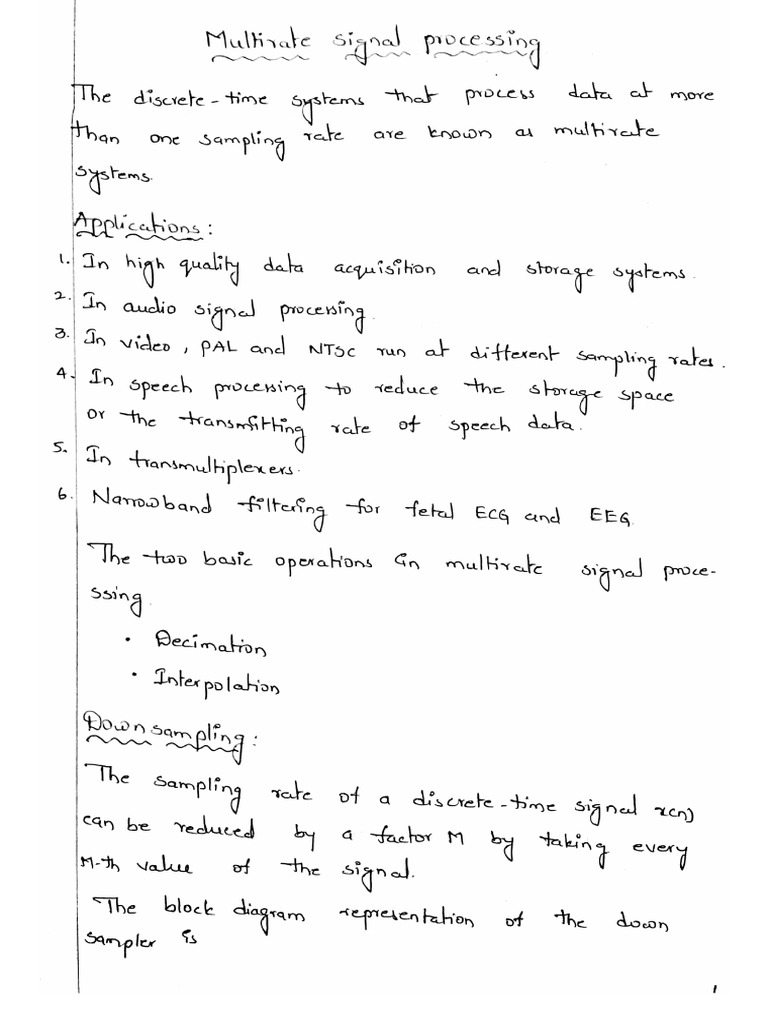 Multirate signal processing
The discrete-time systems that process data at more
than one sampling rate are known as multirate
systems.
Applications:
1. In high quality data acquisition and storage systems.
2. In audio signal processing.
3. In video, PAL and NTSC run at different sampling rates.
4. In speech processing to reduce the storage space
or the transmitting rate of speech data.
5. In transmultiplexers.
6. Narrowband filtering for fetal ECG and EEG.
The two basic operations in multirate signal proce-
ssing.
• Decimation
• Interpolation
Down sampling:
The sampling rate of a discrete-time signal x(n)
can be reduced by a factor M by taking every
M-th value of the signal.
The block diagram representation of the down
sampler is
1